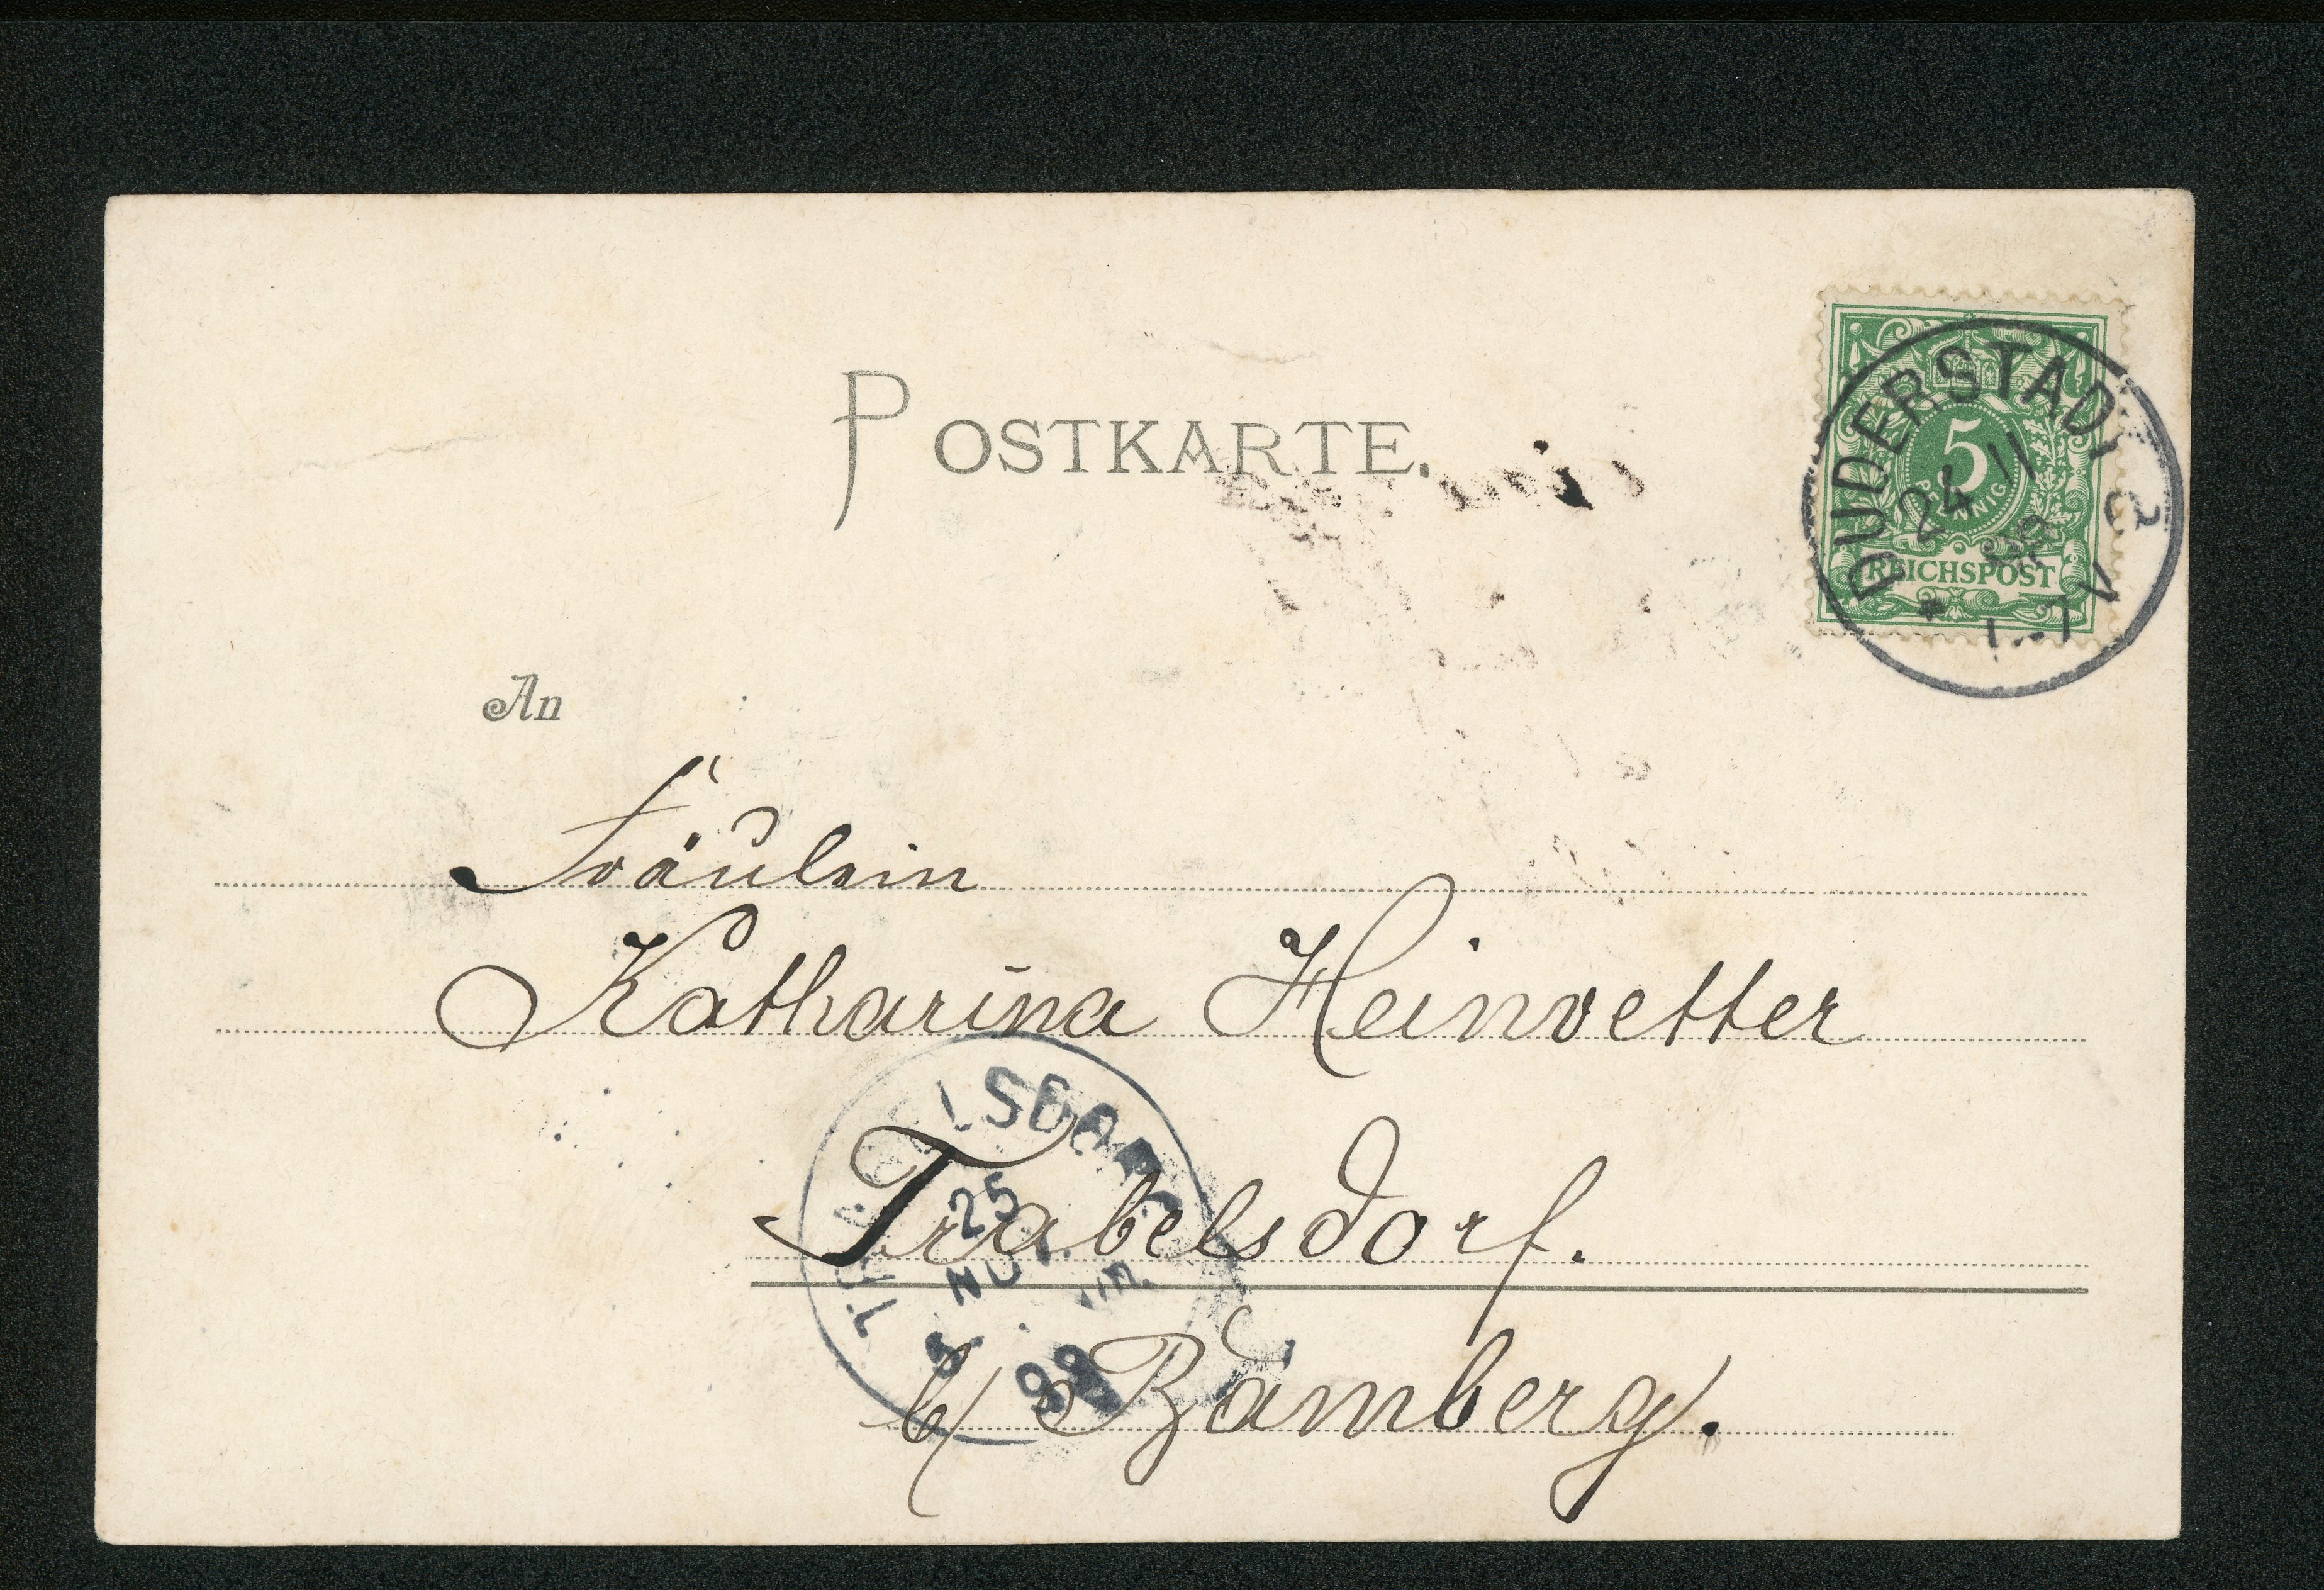 POSTKARTE.
5
PFENNIG
REICHSPOST
DUDERSTADT
24 11
99
1-7 N
An
Fräulein
Katharina Heinvetter
Trabelsdorf.
b/ Bamberg.
TRABELSDORF
25
NOV.
99